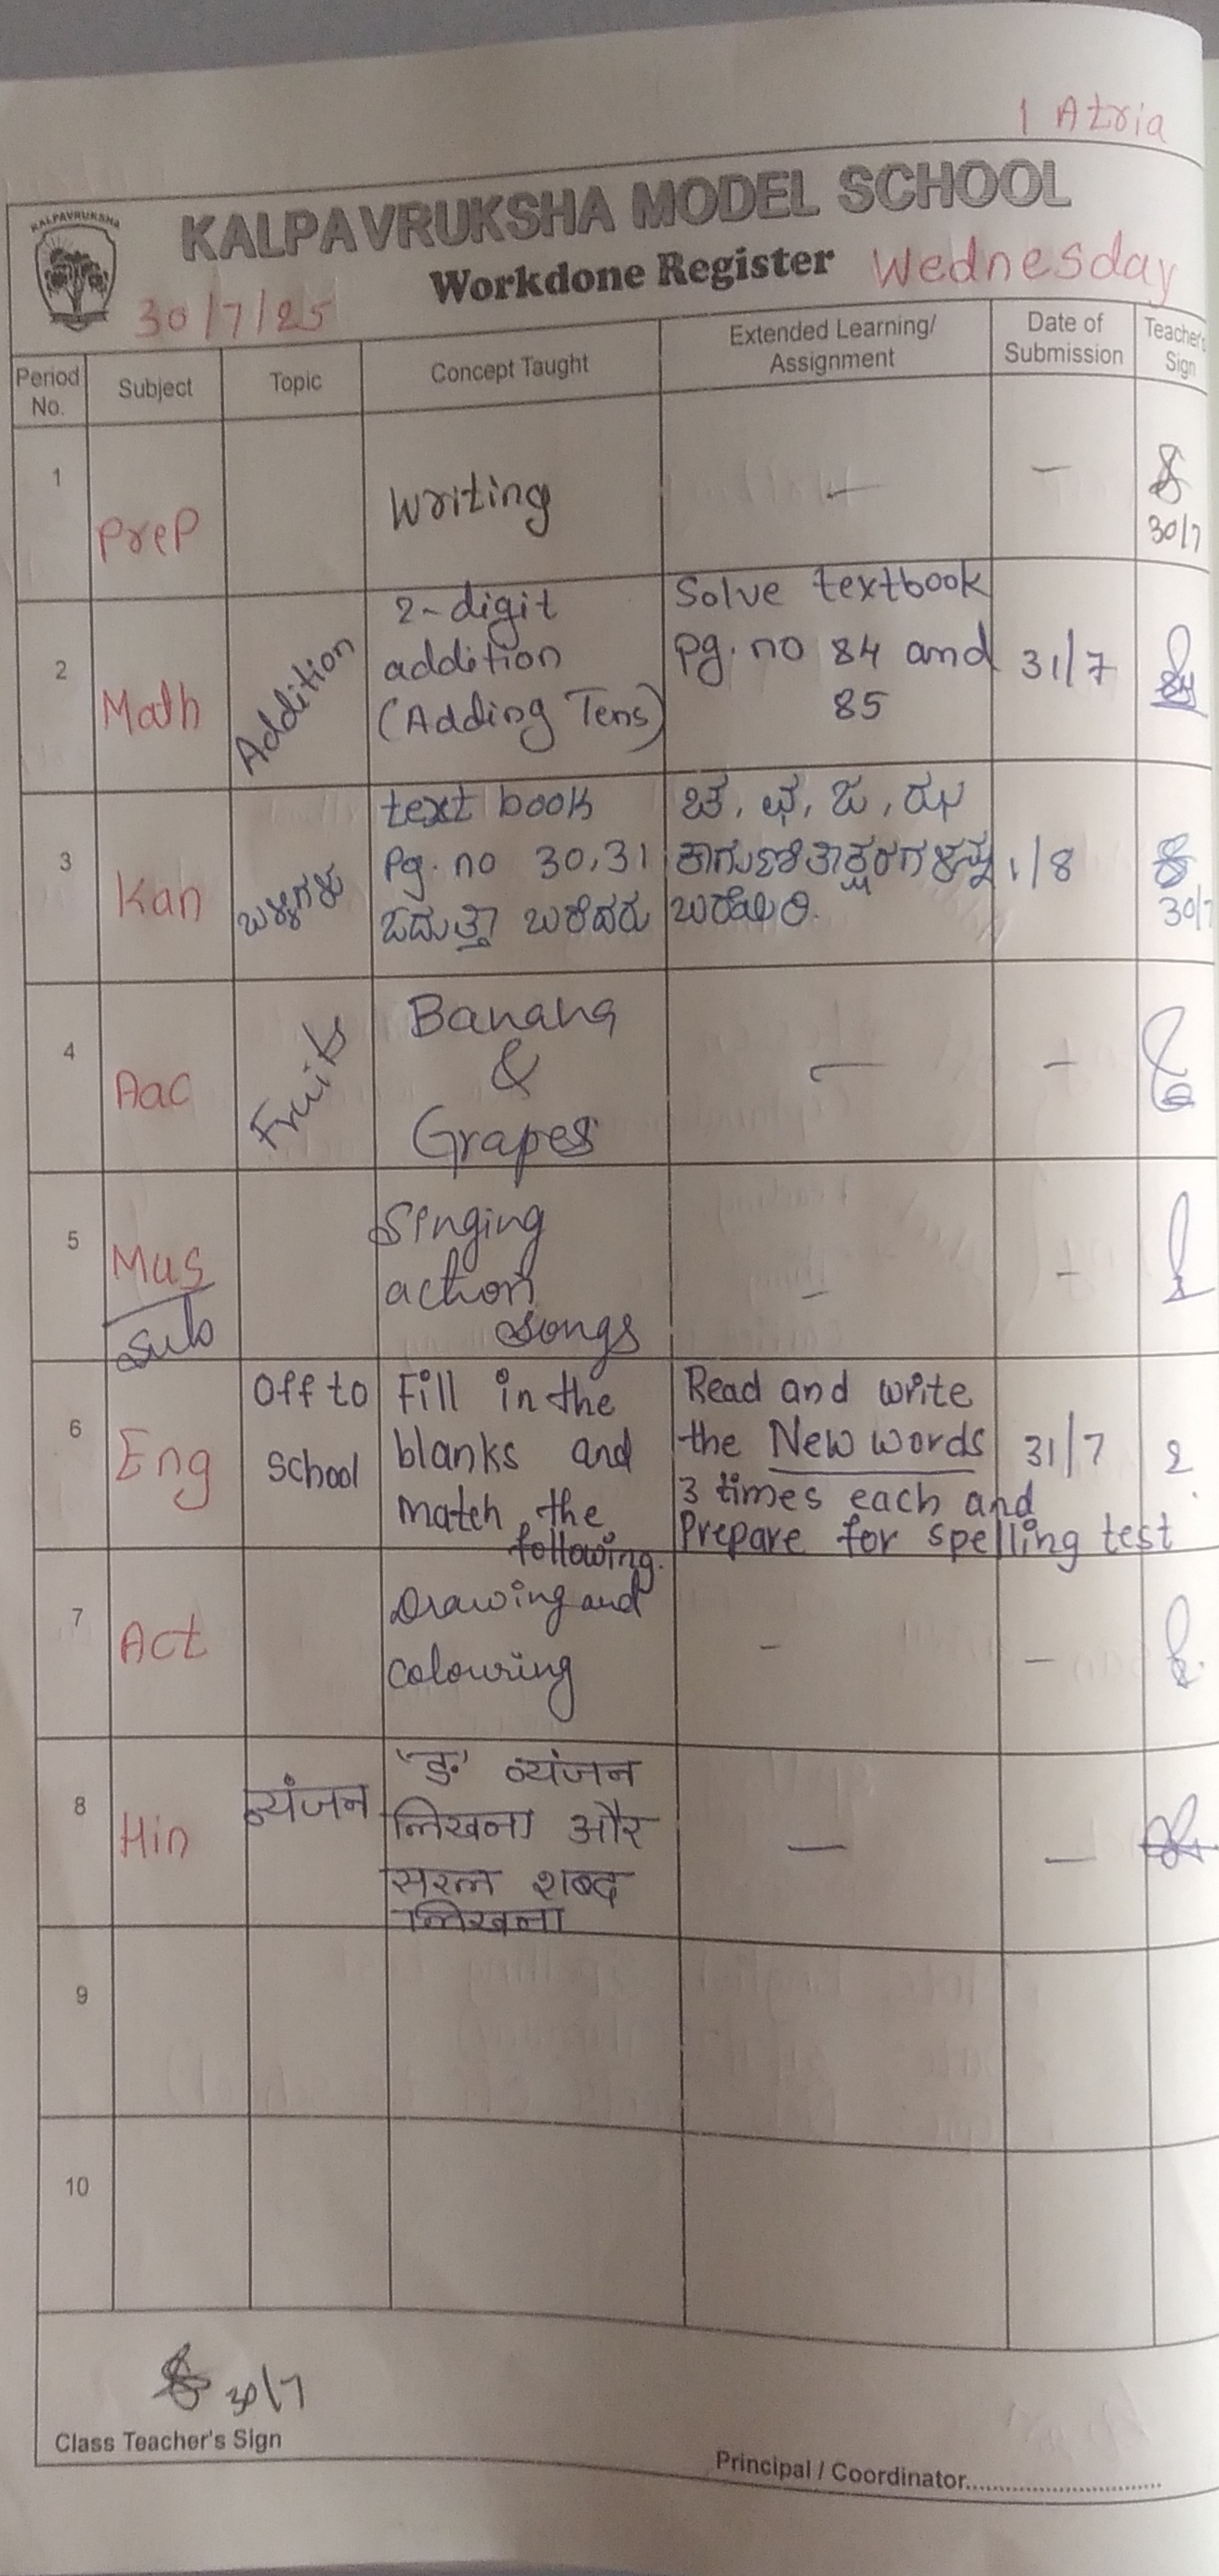 1 Atria
KALPAVRUKSHA
KALPAVRUKSHA MODEL SCHOOL
Workdone Register Wednesday
30/7/25
Period No. Subject Topic Concept Taught Extended Learning/ Assignment Date of Submission Teacher's Sign
1 PreP Writing — —
30/7
2 Math Addition
2-digit
addition
(Adding Tens)
Solve textbook
Pg. no 84 and
85
31/7
3 Kan
text book
Pg. no 30,31
ಓದುತ್ತಾ ಬರೆದರು
ಚ, ಛ, ಜ, ಝ
ಬರೆಯಿರಿ.
1/8
30/7
4 Aac Fruits
Banana
&
Grapes
— —
5 Mus
Sub
Singing
action
songs
- -
6 Eng
Off to
School
Fill in the
blanks and
match the
following.
Read and write
the New words
3 times each and
Prepare for spelling test
31/7
7 Act
Drawing and
colouring
- —
8 Hin व्यंजन
'ङ' व्यंजन
लिखना और
सरल शब्द
लिखना
— —
9
10
30/7
Class Teacher's Sign
Principal / Coordinator..............................